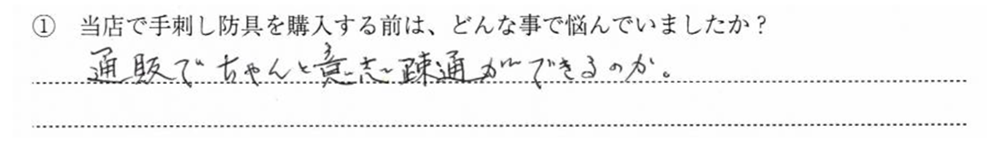 ① 当店で手刺し防具を購入する前は、どんな事で悩んでいましたか？
通販でちゃんと意志疎通ができるのか。